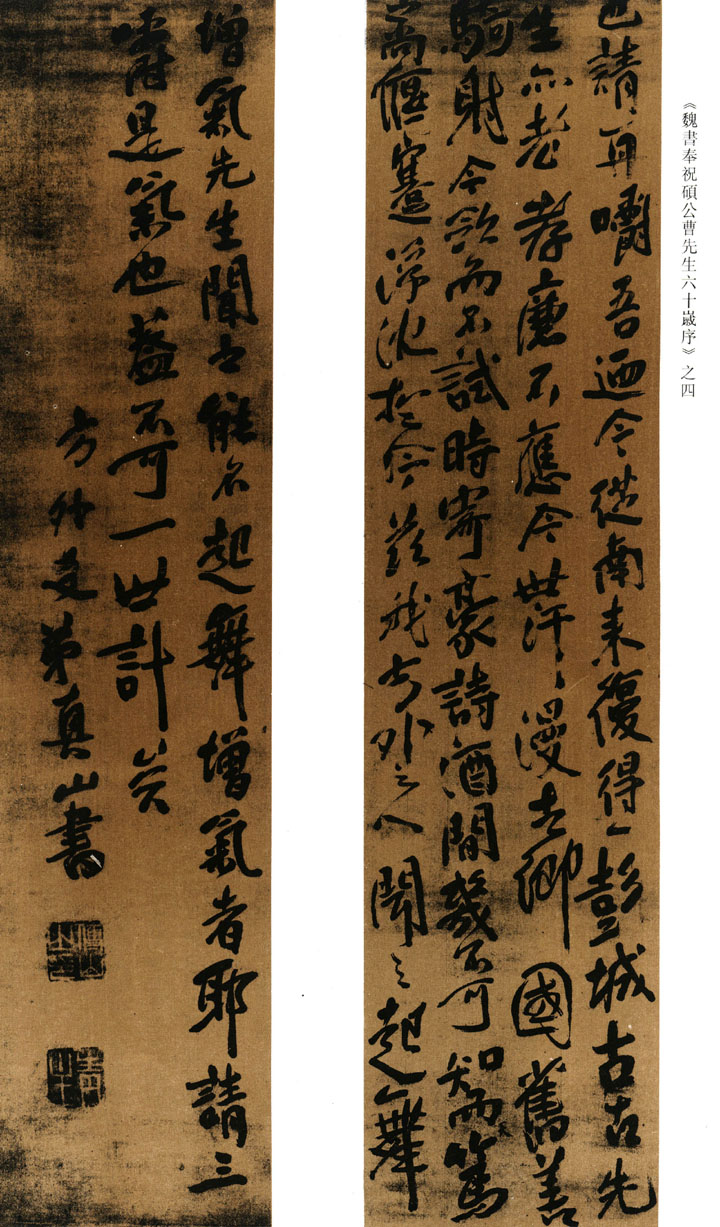 《魏書奉祝碩公曹先生六十歲序》之四
也請再嚼吾迺今從南来復得一彭城古古先
生亦老孝廉不應今世汗漫去鄉國舊善
騎射今欲而不試時寄豪詩酒間幾不可知而篤
崙偃蹇浮沈於今茲我方外之人聞之起舞
增氣先生聞之能不起舞增氣者耶請三
嚼是氣也蓋不可一世計矣
方外友弟真山書